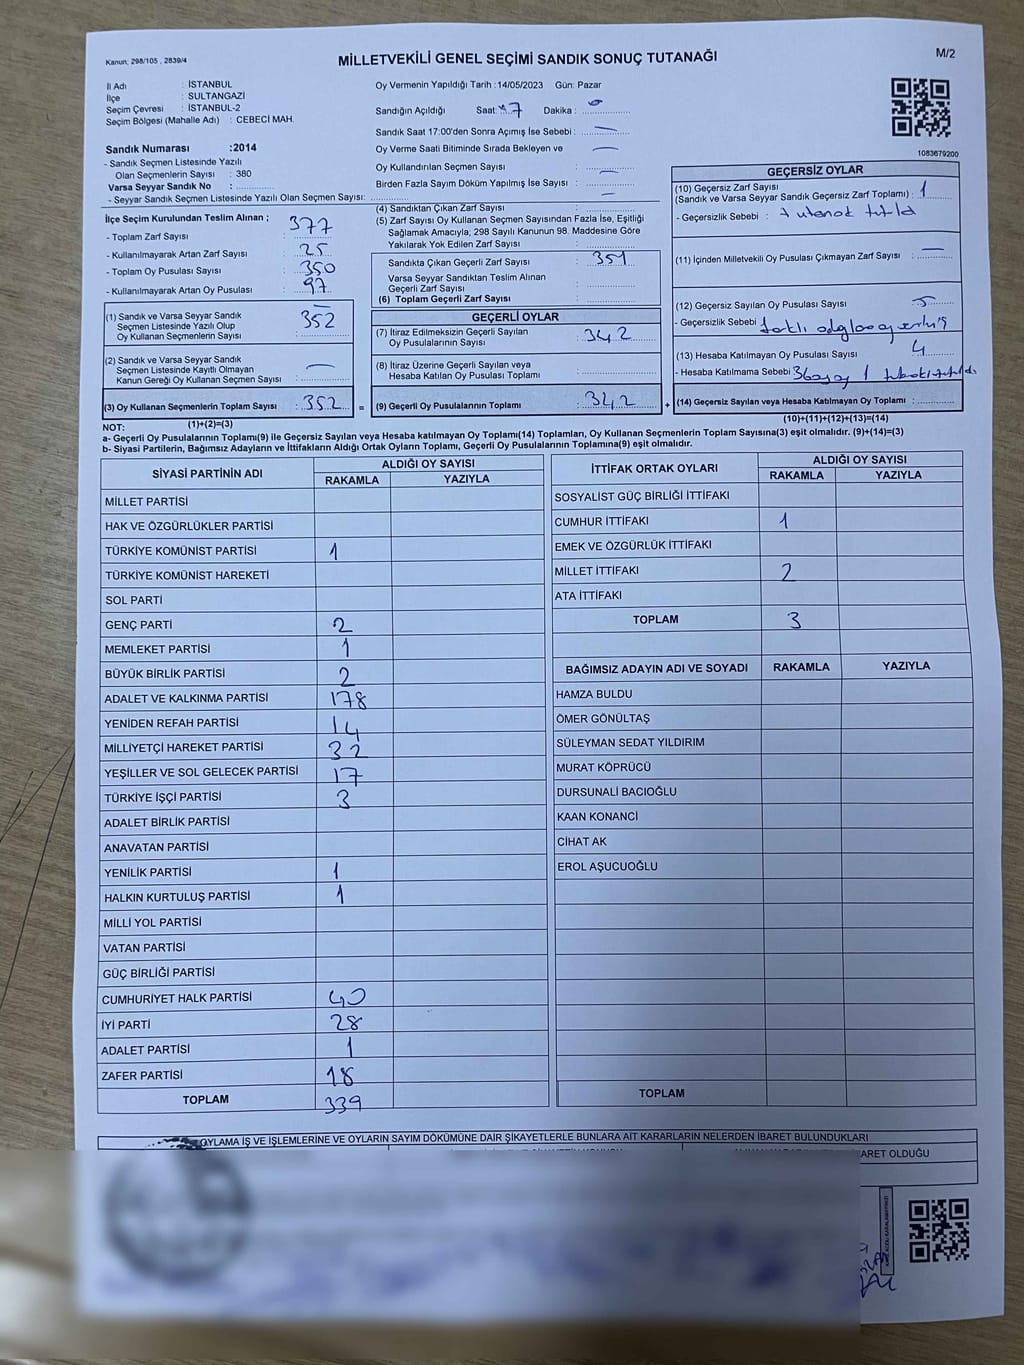 Kanun; 298/105 , 2839/4
MİLLETVEKİLİ GENEL SEÇİMİ SANDIK SONUÇ TUTANAĞI
M/2
İl Adı : İSTANBUL
İlçe : SULTANGAZİ
Seçim Çevresi : İSTANBUL-2
Seçim Bölgesi (Mahalle Adı) : CEBECİ MAH.
Sandık Numarası :2014
- Sandık Seçmen Listesinde Yazılı
Olan Seçmenlerin Sayısı : 380
Varsa Seyyar Sandık No :
- Seyyar Sandık Seçmen Listesinde Yazılı Olan Seçmen Sayısı:
Oy Vermenin Yapıldığı Tarih :14/05/2023 Gün: Pazar
Sandığın Açıldığı Saat: 17 Dakika :
Sandık Saat 17:00'den Sonra Açımış İse Sebebi :
Oy Verme Saati Bitiminde Sırada Bekleyen ve
Oy Kullandırılan Seçmen Sayısı :
Birden Fazla Sayım Döküm Yapılmış İse Sayısı :
1083679200
İlçe Seçim Kurulundan Teslim Alınan ;
- Toplam Zarf Sayısı : 377
- Kullanılmayarak Artan Zarf Sayısı : 25
- Toplam Oy Pusulası Sayısı : 350
- Kullanılmayarak Artan Oy Pusulası : 97
(1) Sandık ve Varsa Seyyar Sandık
Seçmen Listesinde Yazılı Olup
Oy Kullanan Seçmenlerin Sayısı : 352
(2) Sandık ve Varsa Seyyar Sandık
Seçmen Listesinde Kayıtlı Olmayan
Kanun Gereği Oy Kullanan Seçmen Sayısı :
(3) Oy Kullanan Seçmenlerin Toplam Sayısı : 352 =
(1)+(2)=(3)
(4) Sandıktan Çıkan Zarf Sayısı :
(5) Zarf Sayısı Oy Kullanan Seçmen Sayısından Fazla İse, Eşitliği
Sağlamak Amacıyla; 298 Sayılı Kanunun 98. Maddesine Göre
Yakılarak Yok Edilen Zarf Sayısı :
Sandıkta Çıkan Geçerli Zarf Sayısı : 351
Varsa Seyyar Sandıktan Teslim Alınan
Geçerli Zarf Sayısı :
(6) Toplam Geçerli Zarf Sayısı :
GEÇERLİ OYLAR
(7) İtiraz Edilmeksizin Geçerli Sayılan
Oy Pusulalarının Sayısı : 342
(8) İtiraz Üzerine Geçerli Sayılan veya
Hesaba Katılan Oy Pusulası Toplamı :
(9) Geçerli Oy Pusulalarının Toplamı : 342 +
GEÇERSİZ OYLAR
(10) Geçersiz Zarf Sayısı
(Sandık ve Varsa Seyyar Sandık Geçersiz Zarf Toplamı) : 1
- Geçersizlik Sebebi : tutanak tutuldu
(11) İçinden Milletvekili Oy Pusulası Çıkmayan Zarf Sayısı :
(12) Geçersiz Sayılan Oy Pusulası Sayısı : 5
- Geçersizlik Sebebi
(13) Hesaba Katılmayan Oy Pusulası Sayısı : 4
- Hesaba Katılmama Sebebi
(14) Geçersiz Sayılan veya Hesaba Katılmayan Oy Toplamı :
(10)+(11)+(12)+(13)=(14)
NOT:
a- Geçerli Oy Pusulalarının Toplamı(9) ile Geçersiz Sayılan veya Hesaba katılmayan Oy Toplamı(14) Toplamları, Oy Kullanan Seçmenlerin Toplam Sayısına(3) eşit olmalıdır. (9)+(14)=(3)
b- Siyasi Partilerin, Bağımsız Adayların ve İttifakların Aldığı Oy Toplamı, Geçerli Oy Pusulalarının Toplamına(9) eşit olmalıdır.
SİYASİ PARTİNİN ADI ALDIĞI OY SAYISI
RAKAMLA YAZIYLA
MİLLET PARTİSİ
HAK VE ÖZGÜRLÜKLER PARTİSİ
TÜRKİYE KOMÜNİST PARTİSİ 1
TÜRKİYE KOMÜNİST HAREKETİ
SOL PARTİ
GENÇ PARTİ 2
MEMLEKET PARTİSİ 1
BÜYÜK BİRLİK PARTİSİ 2
ADALET VE KALKINMA PARTİSİ 178
YENİDEN REFAH PARTİSİ 14
MİLLİYETÇİ HAREKET PARTİSİ 32
YEŞİLLER VE SOL GELECEK PARTİSİ 17
TÜRKİYE İŞÇİ PARTİSİ 3
ADALET BİRLİK PARTİSİ
ANAVATAN PARTİSİ
YENİLİK PARTİSİ 1
HALKIN KURTULUŞ PARTİSİ 1
MİLLİ YOL PARTİSİ
VATAN PARTİSİ
GÜÇ BİRLİĞİ PARTİSİ
CUMHURİYET HALK PARTİSİ 40
İYİ PARTİ 28
ADALET PARTİSİ 1
ZAFER PARTİSİ 18
TOPLAM 339
İTTİFAK ORTAK OYLARI ALDIĞI OY SAYISI
RAKAMLA YAZIYLA
SOSYALİST GÜÇ BİRLİĞİ İTTİFAKI
CUMHUR İTTİFAKI 1
EMEK VE ÖZGÜRLÜK İTTİFAKI
MİLLET İTTİFAKI 2
ATA İTTİFAKI
TOPLAM 3
BAĞIMSIZ ADAYIN ADI VE SOYADI RAKAMLA YAZIYLA
HAMZA BULDU
ÖMER GÖNÜLTAŞ
SÜLEYMAN SEDAT YILDIRIM
MURAT KÖPRÜCÜ
DURSUNALİ BACIOĞLU
KAAN KONANCİ
CİHAT AK
EROL AŞUCUOĞLU
TOPLAM
OYLAMA İŞ VE İŞLEMLERİNE VE OYLARIN SAYIM DÖKÜMÜNE DAİR ŞİKAYETLERLE BUNLARA AİT KARARLARIN NELERDEN İBARET BULUNDUKLARI
ARET OLDUĞU